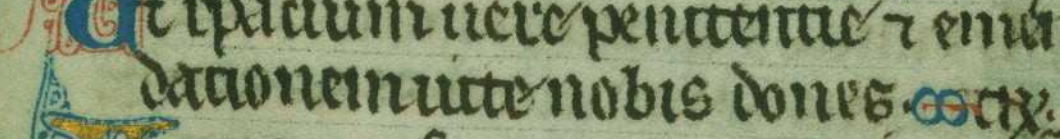 Ut spacium uere penitentie ⁊ emen
dationem uite nobis dones.